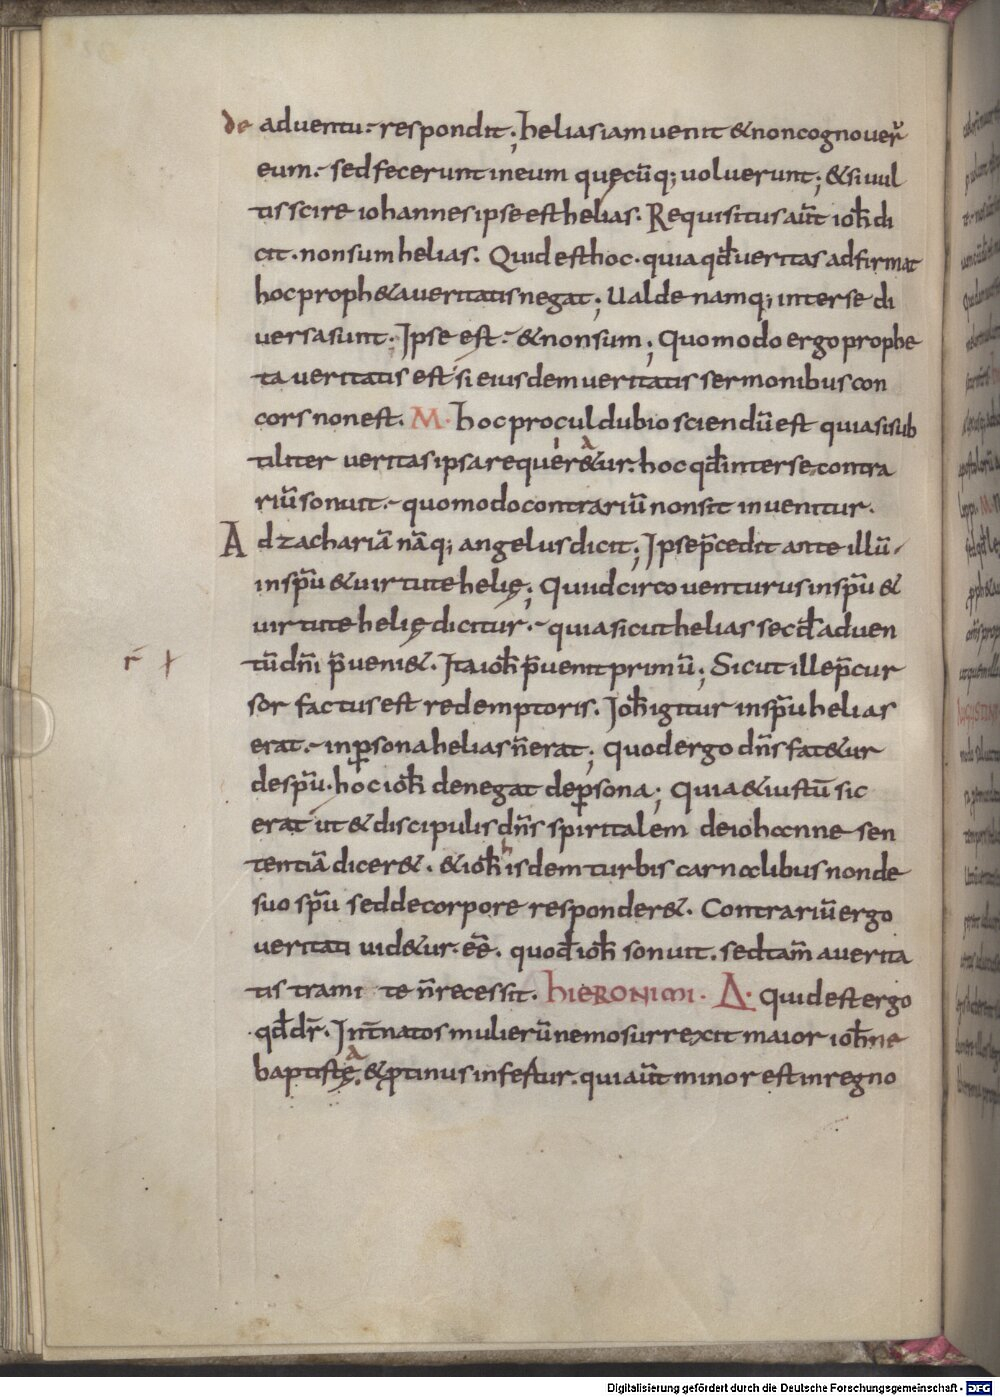 de aduentu. respondit; helias iam uenit & non cognouer̄
eum. sed fecerunt in eum quęcūq; uoluerunt; & si uul
tis scire iohannes ipse est helias. Requisitus aūt ioh̄ di
cit. non sum helias. Quid est hoc. quia qd̄ ueritas adfirmat
hoc proph&a ueritatis negat; Ualde namq; inter se di
uersa sunt. Ipse est. & non sum; Quomodo ergo prophe
ta ueritatis est si eiusdem ueritatis sermonibus con
cors non est. M. hoc procul dubio sciendū est quia si sub
tiliter ueritas ipsa requir&ur. hoc qd̄ inter se contra
riū sonuit. quomodo contrariū non sit inuenitur.
Ad zachariā nāq; angelus dicit; Ipse p̄cedit ante illū
in sp̄u & uirtute helię; Quid circo uenturus in sp̄u &
uirtute helię dicitur. quia sicut helias secd̄ aduen
r̄ tū dn̄i p̄ueni&. Ita ioh̄ p̄uenit primū; Sicut ille p̄cur
sor factus est redemptoris. Ioh̄ igitur in sp̄u helias
erat. in ꝑsona helias n̄ erat; quod ergo dn̄s fat&ur
de sp̄u. hoc ioh̄ denegat de ꝑsona; Quia & iustū sic
erat ut & discipulis dn̄s spiritalem de iohanne sen
tentiā dicer&. & ioh̄ hisdem turbis carnalibus non de
suo sp̄u sed de corpore responder&. Contrariū ergo
ueritati uid&ur. eē. quod ioh̄ sonuit. sed tam̄ a uerita
tis trami te n̄ recessit. hIERONIMI. Δ. Quid est ergo
qd̄ dr̄. Int̄ natos mulierū nemo surrexit maior ioh̄ne
baptistę. & ꝓtinus infertur. qui aūt minor est in regno